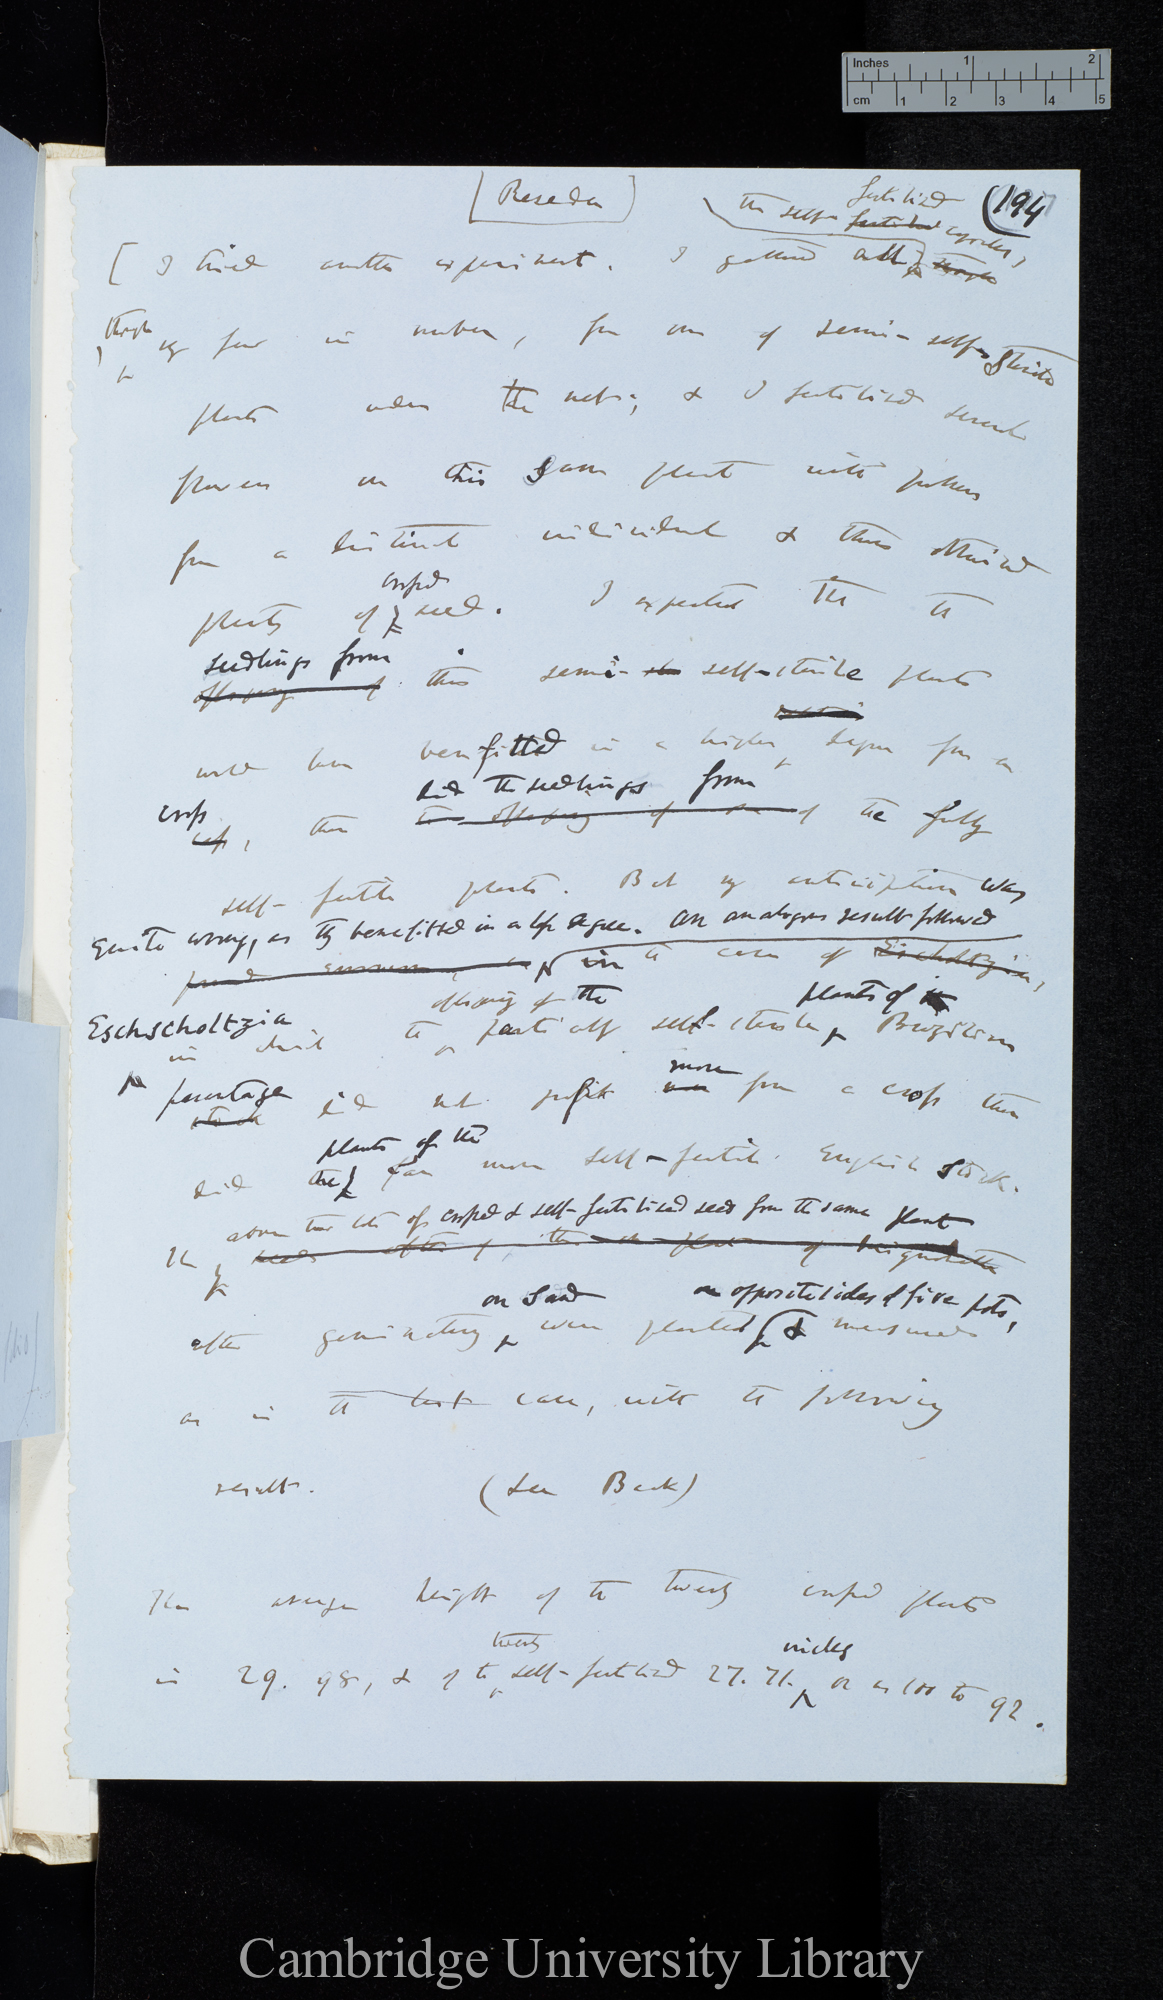 Inches 1 2
cm 1 2 3 4 5
[Reseda]
fertilised
(194
the self-fertilised capsules,
[I tried another experiment. I gathered all though
though
very few in number, from one of semi-self-sterile
plants under the nets; & I fertilised several
flowers on this same plant with pollen
from a distinct individual & thus obtained
crossed
plants of seed. I expected that the
seedlings from
offspring of this semi-self-sterile plants
would have benefitted in a higher degree from a
cross did the seedlings from
than the offspring of of the fully
self-fertile plants. But my anticipation was
quite wrong, as they benefitted in a less degree. An analogous result followed
in the case of Escholtzia,
offspring of the plants of
Eschscholtzia
in which the partially self-sterile Brazilian
parentage more
stock did not profit more from a cross than
plants of the
did the far more self-fertile English stock.
above two lots of crossed & self-fertilised seed from the same plant
The seeds of the plant of mignonette
on sand on opposite sides of five pots,
after germinating were planted & measured
as in the last case, with the following
result. (See Back)
The average height of the twenty crossed plants
twenty inches
is 29.98, & of the self-fertilised 27.71. or as 100 to 92.
Cambridge University Library